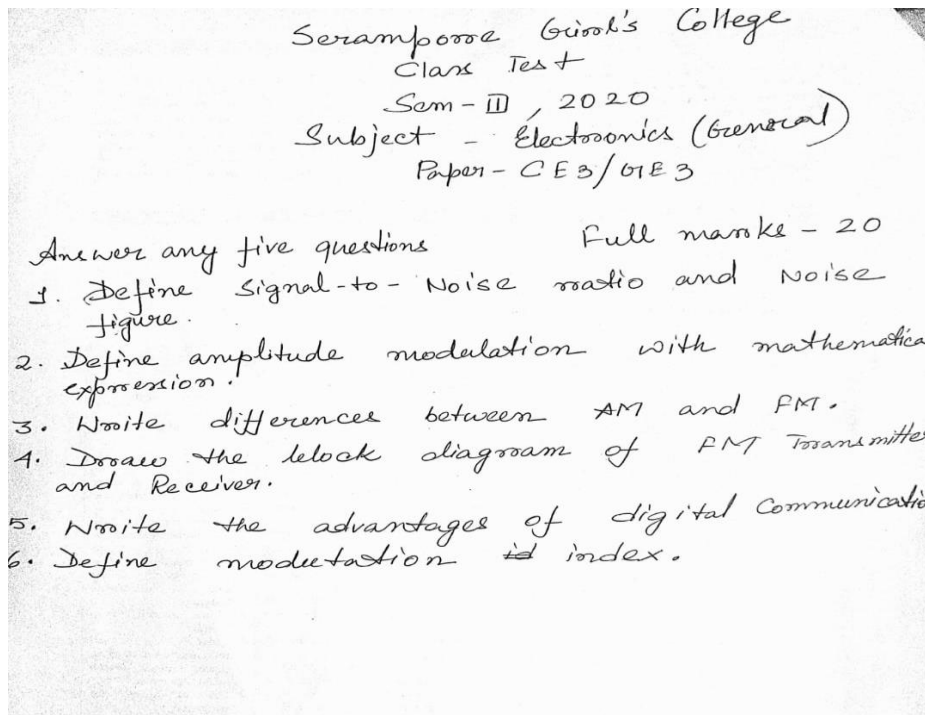 Serampore Girl's College
Class Test
Sem - III, 2020
Subject - Electronics (General)
Paper - CE3/GE3
Answer any five questions Full marks - 20
1. Define Signal-to-Noise ratio and Noise
figure.
2. Define amplitude modulation with mathematica
expression.
3. Write differences between AM and FM.
4. Draw the block diagram of FM Transmitte
and Receiver.
5. Write the advantages of digital Communicatio
6. Define modulation index.